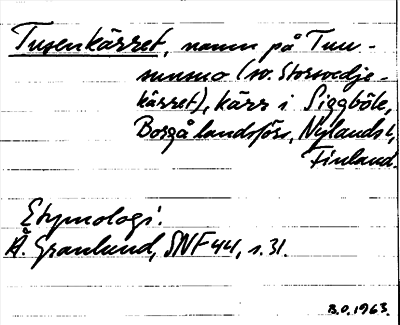 Tusenkärret, namn på Tuu-
sunsuo (sv. Storsvedje-
kärret), kärr i Siggböle,
Borgå landsförs, Nylands l,
Finland.
Etymologi.
Å. Granlund, SNF 44, s. 31.
B.O. 1963.